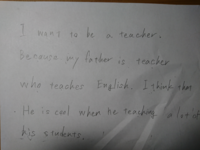 I want to be a teacher.
Because my father is teacher
who teaches English. I think that
He is cool when he teaching a lot of
his students.